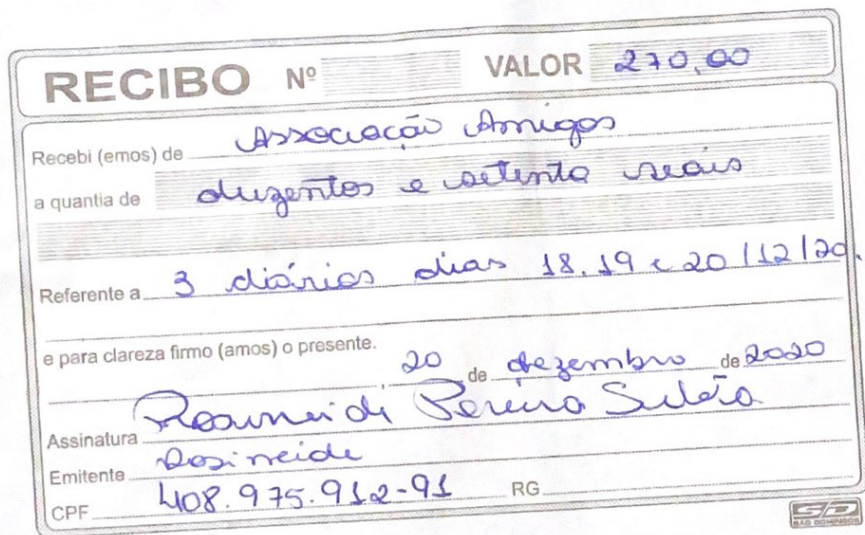 RECIBO Nº VALOR 270,00
Recebi (emos) de Associação Amigos
a quantia de duzentos e setenta reais
Referente a 3 diárias dias 18.19 e 20/12/20.
e para clareza firmo (amos) o presente.
20 de dezembro de 2020
Assinatura Pereira
Emitente Rosineide
CPF 408.975.912-91 RG
SD
SÃO DOMINGOS